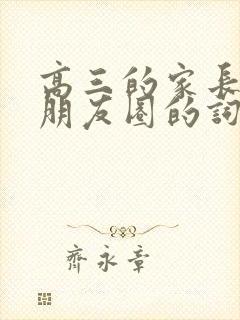 高三的家長
朋友圈的詞
齊永章